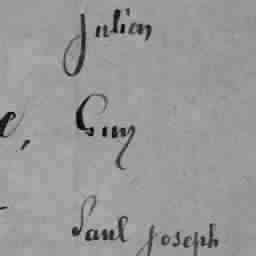 Julien
e, Guy
Paul Joseph